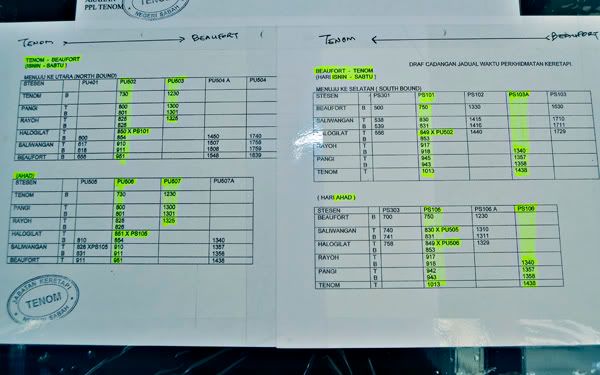 PPL TENOM
NEGERI SABAH
TENOM → BEAUFORT
TENOM - BEAUFORT
(ISNIN - SABTU)
MENUJU KE UTARA (NORTH BOUND)
STESEN PU401 PU502 PU503 PU504 A PU504
TENOM B 730 1230
PANGI T 800 1300
B 801 1301
RAYOH T 828 1325
B 828
HALOGILAT T 850 X PS101
B 600 854 1450 1740
SALIWANGAN T 617 910 1507 1758
B 618 911 1508 1759
BEAUFORT T 658 951 1548 1839
(AHAD)
STESEN PU505 PU506 PU507 PU507A
TENOM B 730 1230
PANGI T 800 1300
B 801 1301
RAYOH T 828 1325
B 828
HALOGILAT T 851 X PS105
B 810 854 1340
SALIWANGAN T 828 XPS105 910 1357
B 831 911 1358
BEAUFORT T 911 951 1438
JABATAN KERETAPI
TENOM
NEGERI SABAH
TENOM ← BEAUFORT
DRAF CADANGAN JADUAL WAKTU PERKHIDMATAN KERETAPI.
BEAUFORT - TENOM
(HARI ISNIN - SABTU)
MENUJU KE SELATAN ( SOUTH BOUND)
STESEN PS301 PS101 PS102 PS103A PS103
BEAUFORT B 500 750 1330 1630
SALIWANGAN T 538 830 1415 1710
B 539 831 1416 1711
HALOGILAT T 556 849 X PU502 1440 1729
B 853
RAYOH T 917
B 918 1340
PANGI T 945 1357
B 943 1358
TENOM T 1013 1438
( HARI AHAD )
STESEN PS303 PS105 PS106 A PS106
BEAUFORT B 700 750 1230
SALIWANGAN T 740 830 X PU505 1310
B 741 831 1311
HALOGILAT T 758 849 X PU506 1329
B 853
RAYOH T 917
B 918 1340
PANGI T 942 1357
B 943 1358
TENOM T 1013 1438